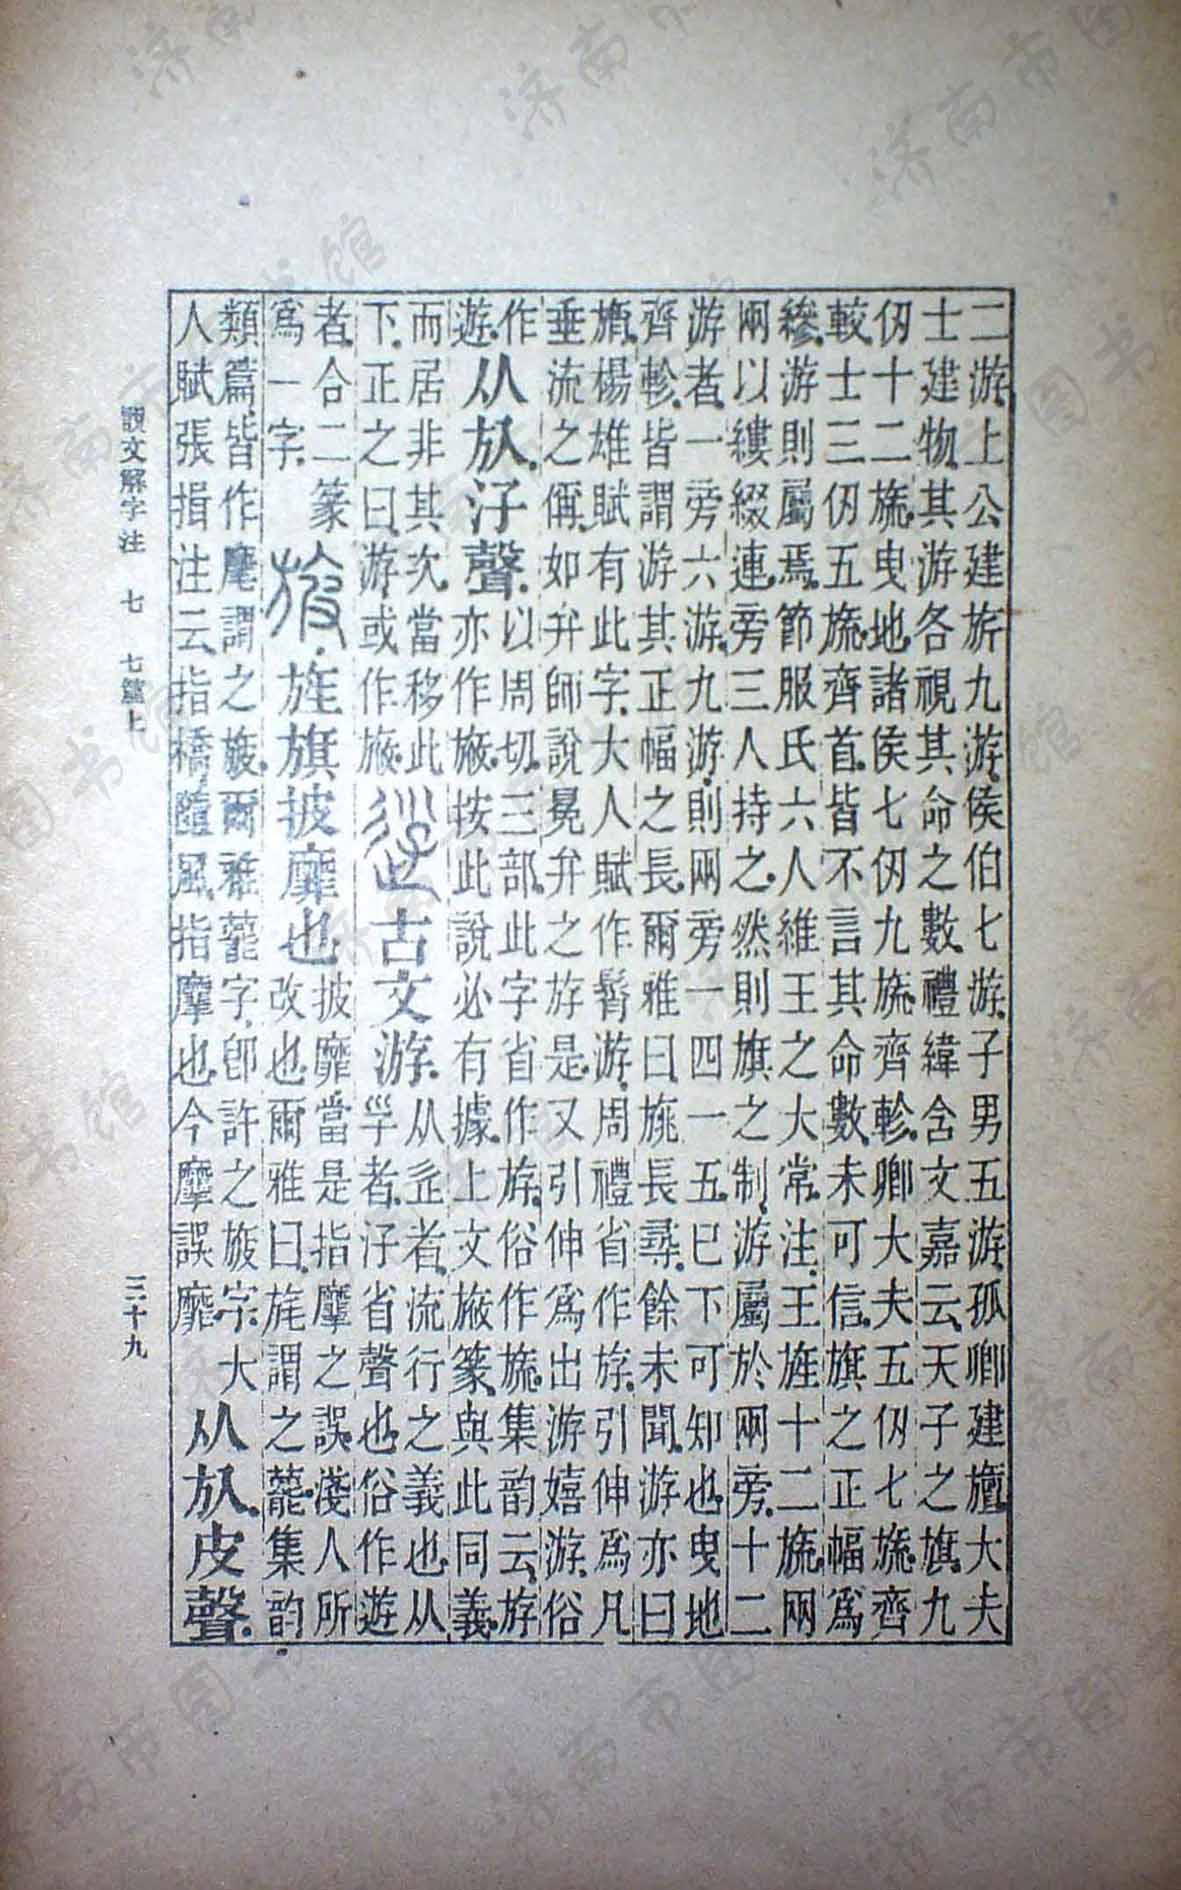 二游上公建旂九游侯伯七游子男五游孤卿建旜大夫
士建物其游各視其命之數禮緯含文嘉云天子之旗九
仞十二旒曳地諸侯七仞九旒齊軫卿大夫五仞七旒齊
較士三仞五旒齊首皆不言其命數未可信旗之正幅爲
縿游則屬焉節服氏六人維王之大常注王旌十二旒兩
兩以縷綴連旁三人持之然則旗之制游屬於兩旁十二
游者一旁六游九游則兩旁一四一五已下可知也曳地
齊軫皆謂游其正幅之長爾雅曰旐長尋餘未聞游亦曰
旓楊雄賦有此字大人賦作髾游周禮省作斿引伸爲凡
垂流之偁如弁師說冕弁之斿是又引伸爲出游嬉游俗
作遊
从㫃汓聲
以周切三部此字省作斿俗作旒集韵云斿
亦作㫏按此說必有據上文㫏篆與此同義
而居非其次當移此
下正之曰游或作㫏
古文游
从辵者流行之義也从
𡥀者汓省聲也俗作遊
者合二篆
爲一字
旇旌旗披靡也
披靡當是指麾之誤淺人所
改也爾雅曰旄謂之藣集韵
類篇皆作麾謂之旇爾雅藣字卽許之旇字大
人賦張揖注云指橋隨風指麾也今麾誤靡
从㫃皮聲
說文解字注 七 七篇上
三十九